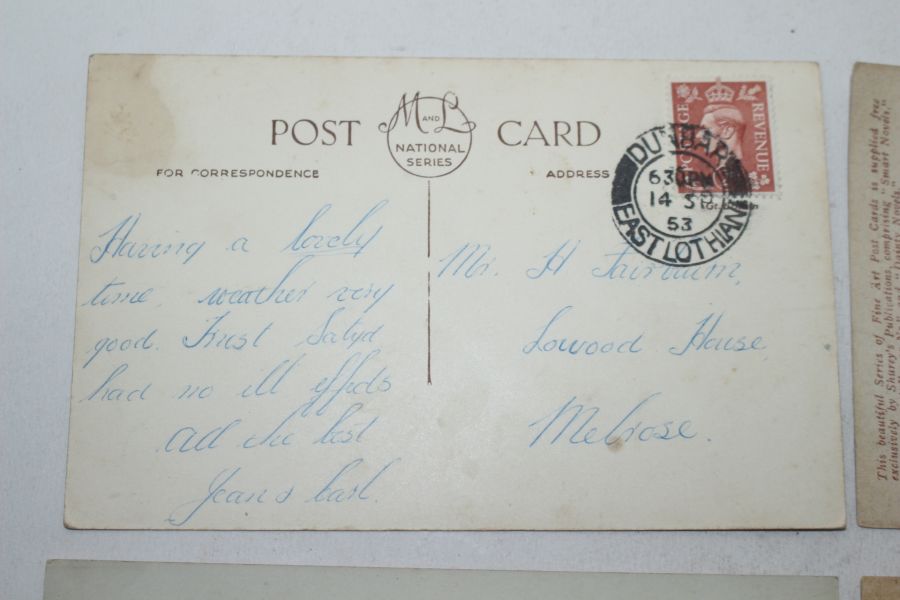 POST M AND L CARD
NATIONAL
SERIES
FOR CORRESPONDENCE
ADDRESS
POSTAGE REVENUE
DUNBAR
630PM
14 SP
53
EAST LOTHIAN
Having a lovely
time, weather very
good. Trust
had no ill effects
All the best
Jean & Carl.
Mr. H Fairbairn,
Lowood House,
Melrose.
This beautiful Series of Fine Art Post Cards is supplied free
exclusively by Shurey's Publications, comprising "Smart Novels,"